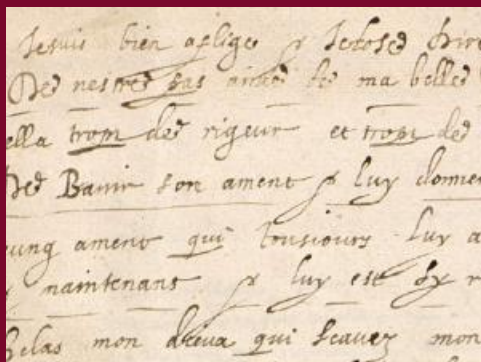 Jesuis bien aflige Jecosed dire
Ded nestred pas aimed ded ma belled
ella tropt ded rigeur et tropt ded
Ded Banir son ament luy donner
ung ament qui tousiours luy a
maintenans luy est sy
helas mon qui scavez mon